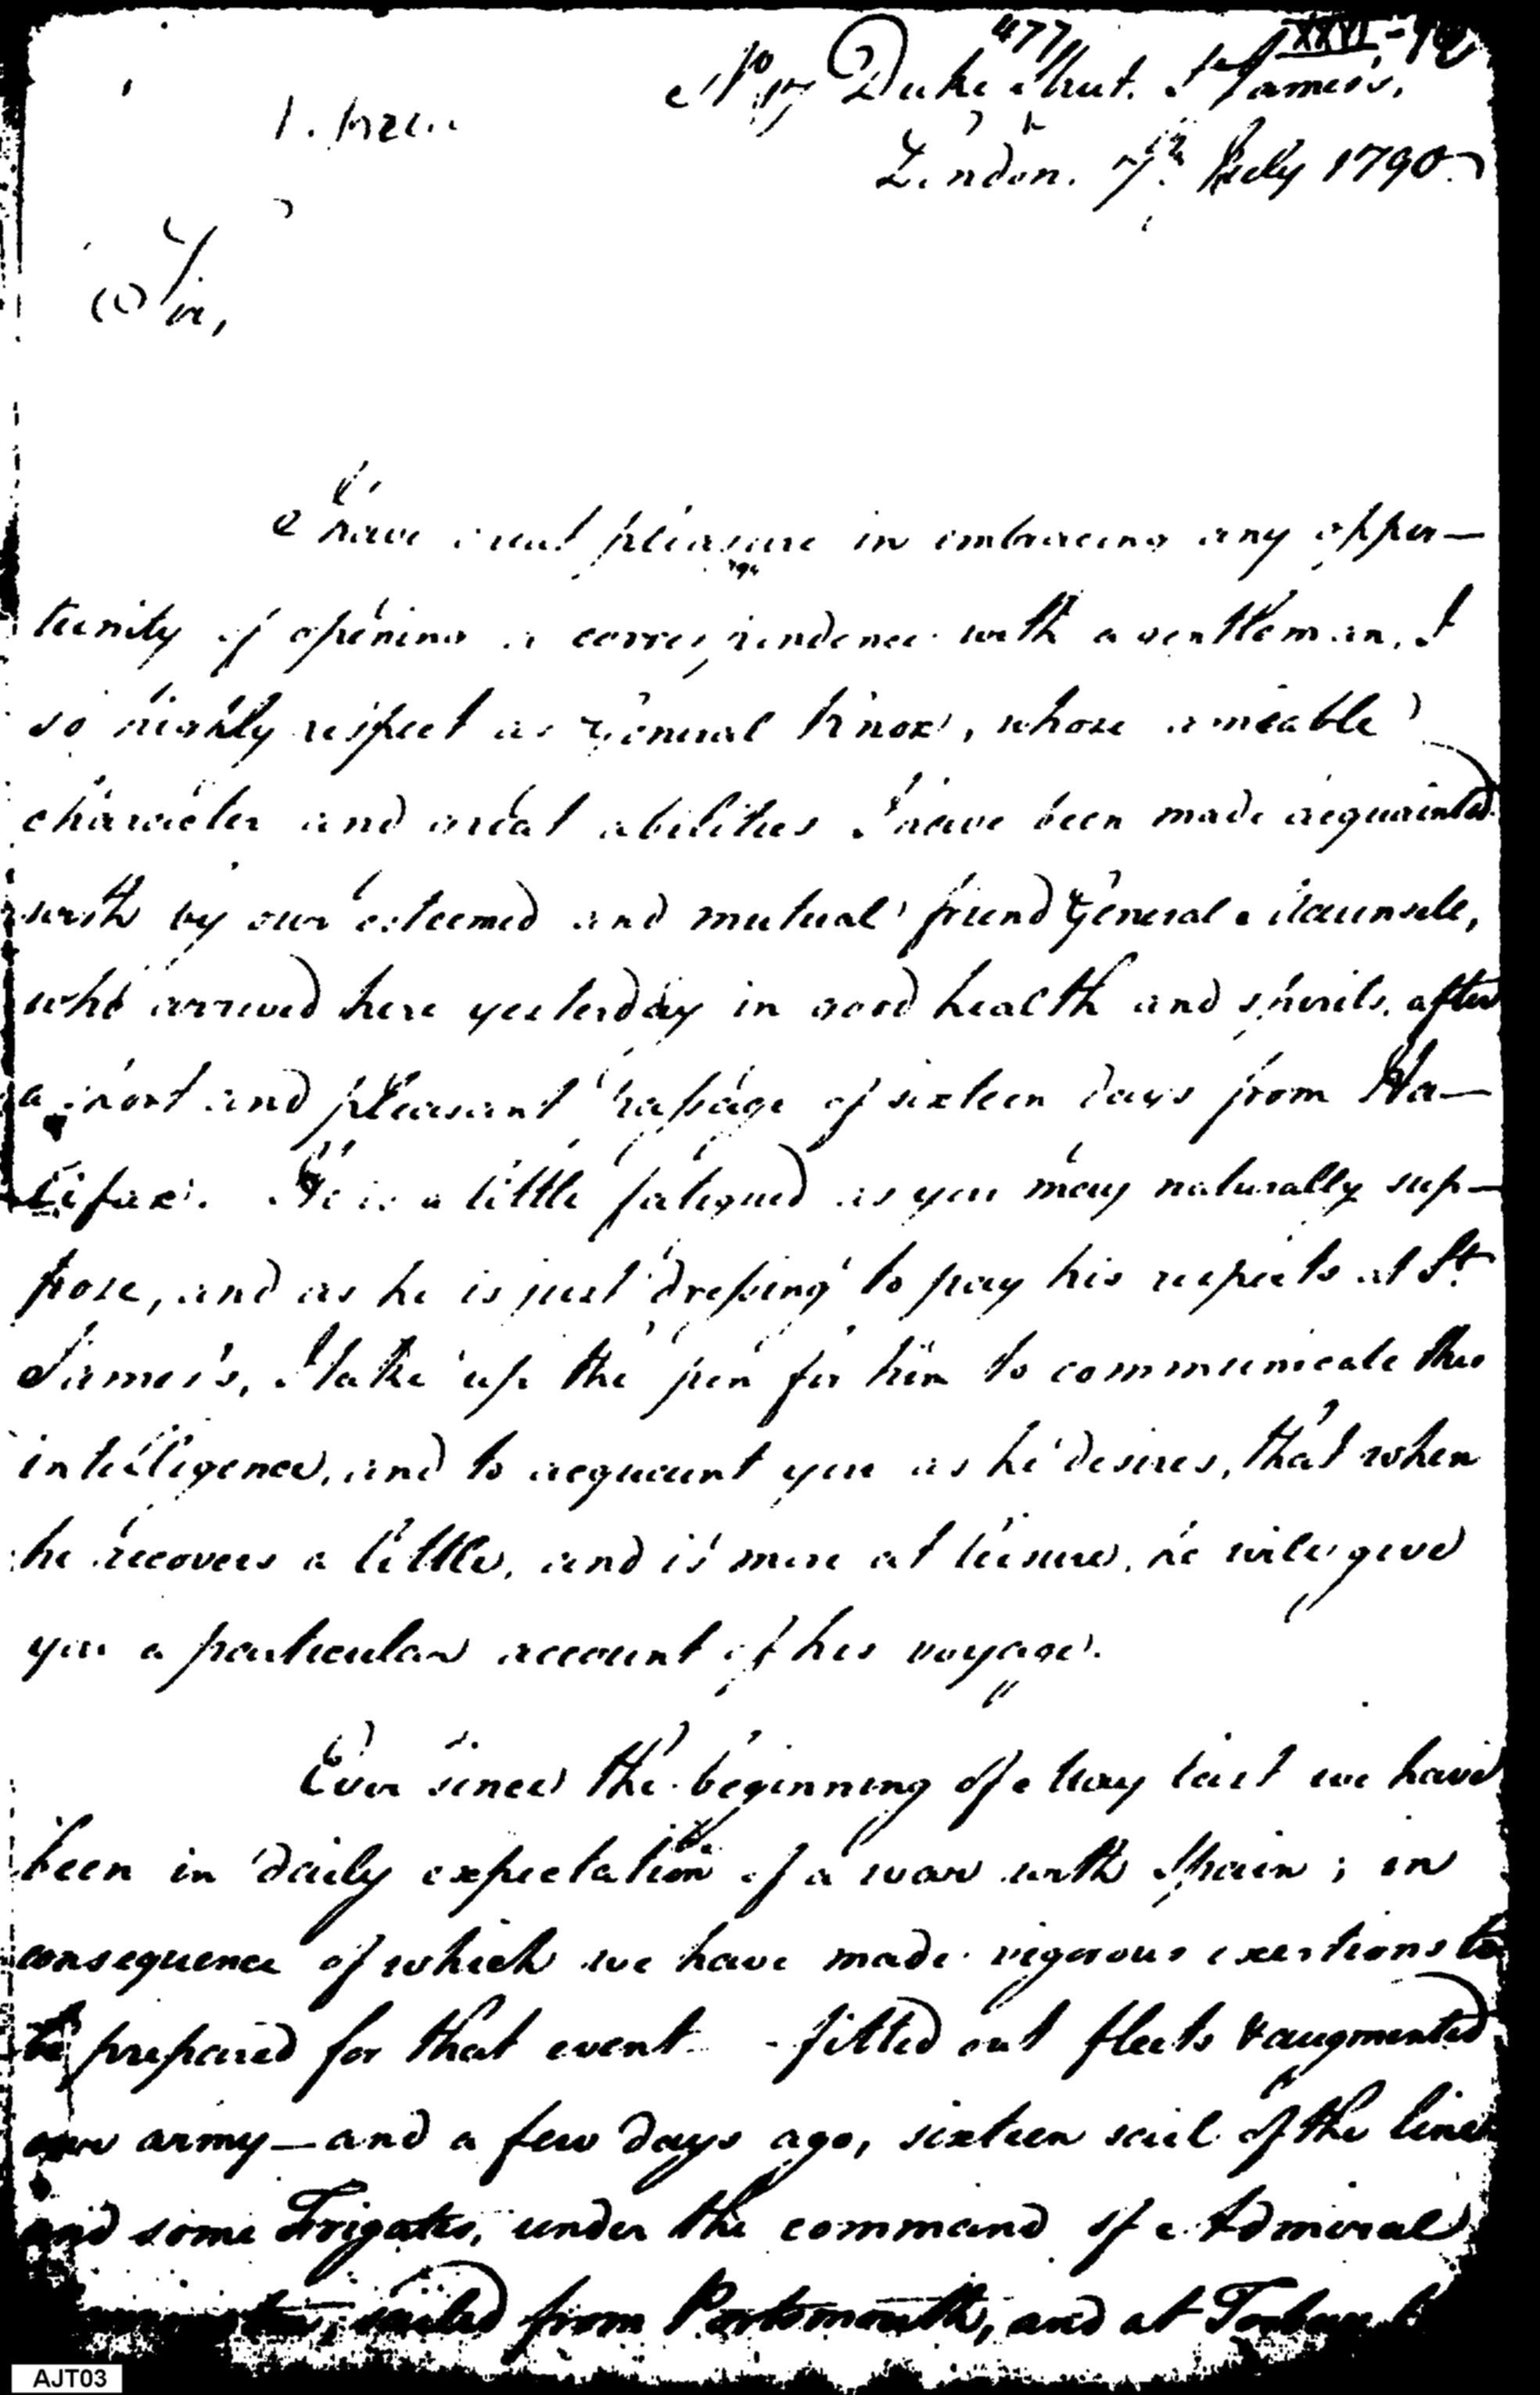 XXVI-
477
No. 17 Duke Street. St James's,
London. 7th July 1790.
Sir,
I have great pleasure in embracing any oppor—
tunity of opening a correspondence with a gentleman, I
so highly respect as General Knox, whose ameable
character and great abilities I have been made acquainted
with by our esteemed and mutual friend General Maunsell,
who arrived here yesterday in good health and spirits, after
a short and pleasant passage of sixteen days from Ha—
lifax. He is a little fatigued as you may naturally sup—
pose, and as he is just dressing to pay his respects at St.
James's, I take up the pen for him to communicate this
intelligence, and to acquaint you as he desires, that when
he recovers a little, and is more at leisure, he will give
you a particular account of his voyage.
Ever since the beginning of May last we have
been in daily expectation of a war with Spain; in
consequence of which we have made vigorous exertions to
be prepared for that event - fitted out fleets & augmented
our army—and a few days ago, sixteen sail of the line
and some Frigates, under the command of Admiral
sailed from Portsmouth, and at Torbay
AJT03